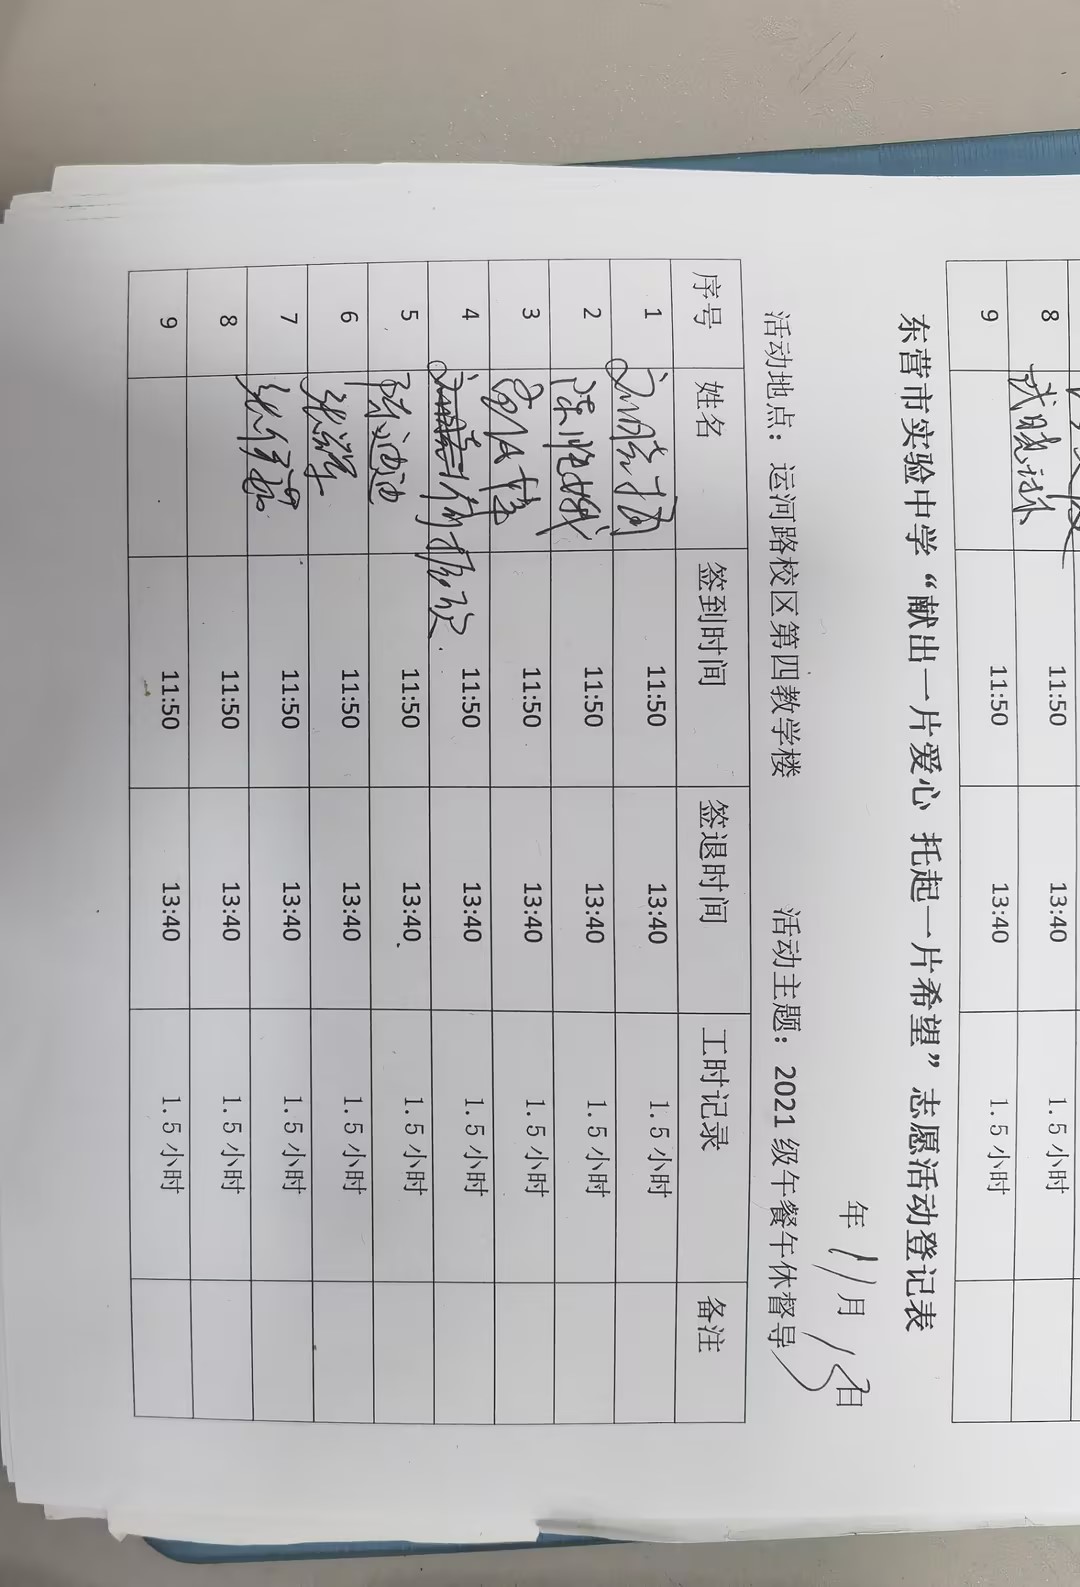 8 11:50 13:40 1.5小时
9 11:50 13:40 1.5小时
东营市实验中学“献出一片爱心 托起一片希望”志愿活动登记表
年 11月 15日
活动地点：运河路校区第四教学楼 活动主题：2021级午餐午休督导
序号 姓名 签到时间 签退时间 工时记录 备注
1 11:50 13:40 1.5小时
2 11:50 13:40 1.5小时
3 11:50 13:40 1.5小时
4 11:50 13:40 1.5小时
5 陈迪迪 11:50 13:40 1.5小时
6 11:50 13:40 1.5小时
7 11:50 13:40 1.5小时
8 11:50 13:40 1.5小时
9 11:50 13:40 1.5小时